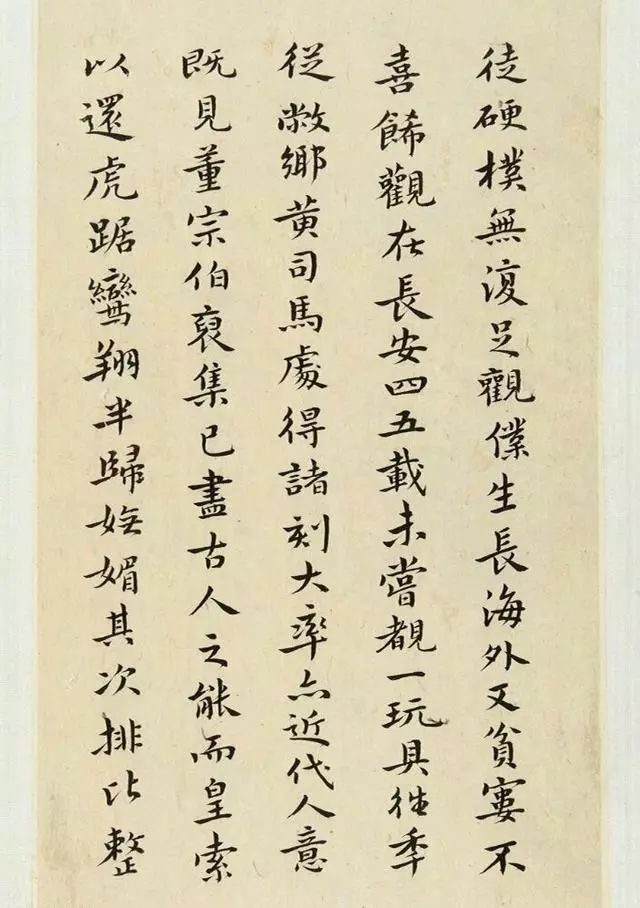 徒硬樸無復足觀僕生長海外又貧窶不
喜餙觀在長安四五載未嘗覩一玩具往季
從敝鄉黃司馬處得諸刻大率亦近代人意
既見董宗伯裒集已盡古人之能而皇索
以還虎踞鸞翔半歸嫵媚其次排比整